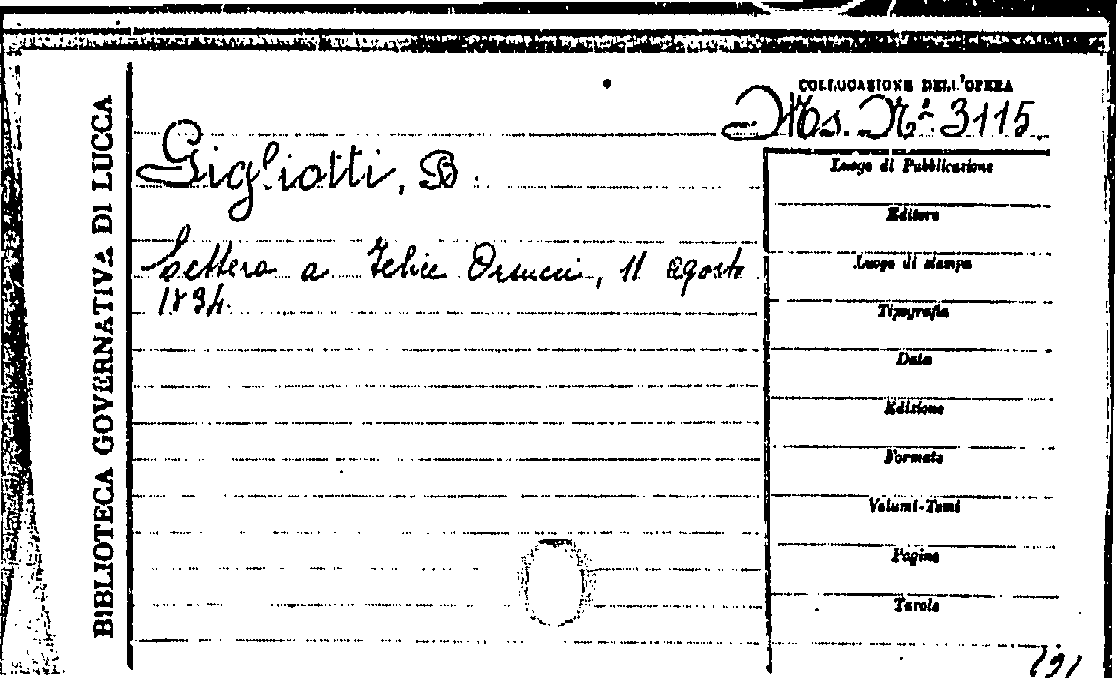 BIBLIOTECA GOVERNATIVA DI LUCCA
COLLOCAZIONE DELL'OPERA
Ms. N.º 3115
Gigliotti, B.
Lettera a Felice Orsucci, 11 agosto
1834.
Luogo di Pubblicazione
Editore
Luogo di stampa
Tipografia
Data
Edizione
Formato
Volumi-Tomi
Pagine
Tavole